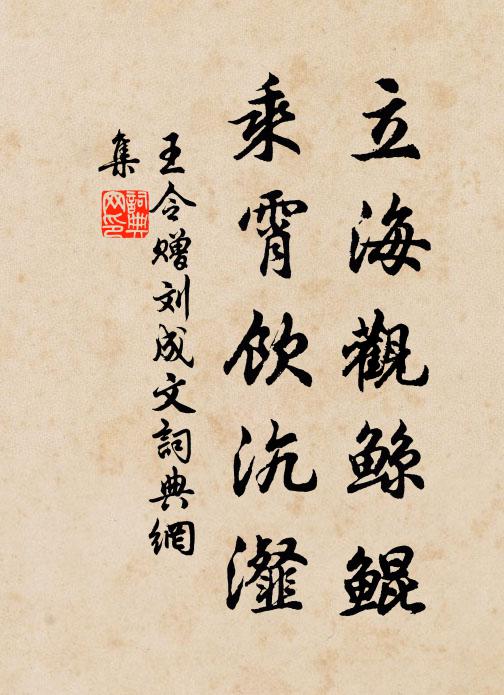 立海觀鲸鲲
乘霄飲沆瀣
王令赠刘成文詞典網
集
詞典网印